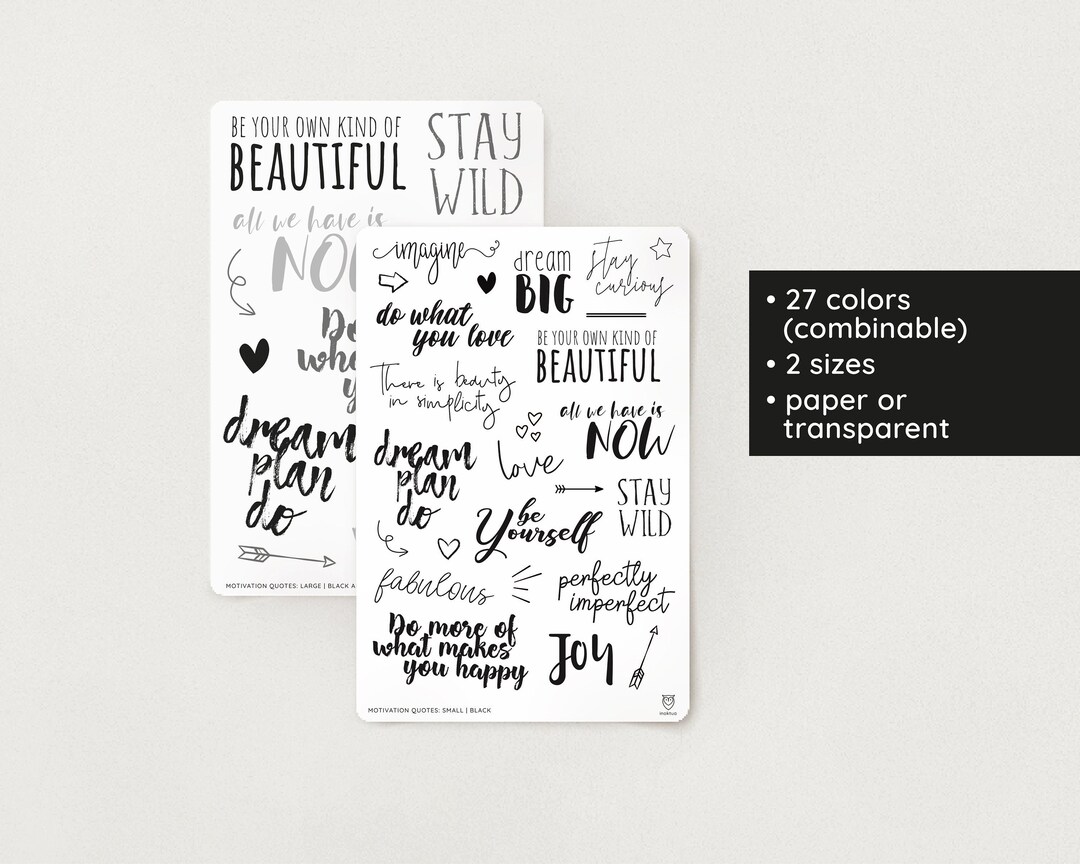 BE YOUR OWN KIND OF
BEAUTIFUL
STAY
WILD
all we have is
dream
plan
do
MOTIVATION QUOTES: LARGE | BLACK
imagine
dream
BIG
stay
curious
do what
you love
BE YOUR OWN KIND OF
BEAUTIFUL
There is beauty
in simplicity
all we have is
NOW
dream
plan
do
love
STAY
WILD
be
Yourself
fabulous
perfectly
imperfect
Do more of
what makes
you happy
JOY
MOTIVATION QUOTES: SMALL | BLACK
inoktus
• 27 colors
(combinable)
• 2 sizes
• paper or
transparent